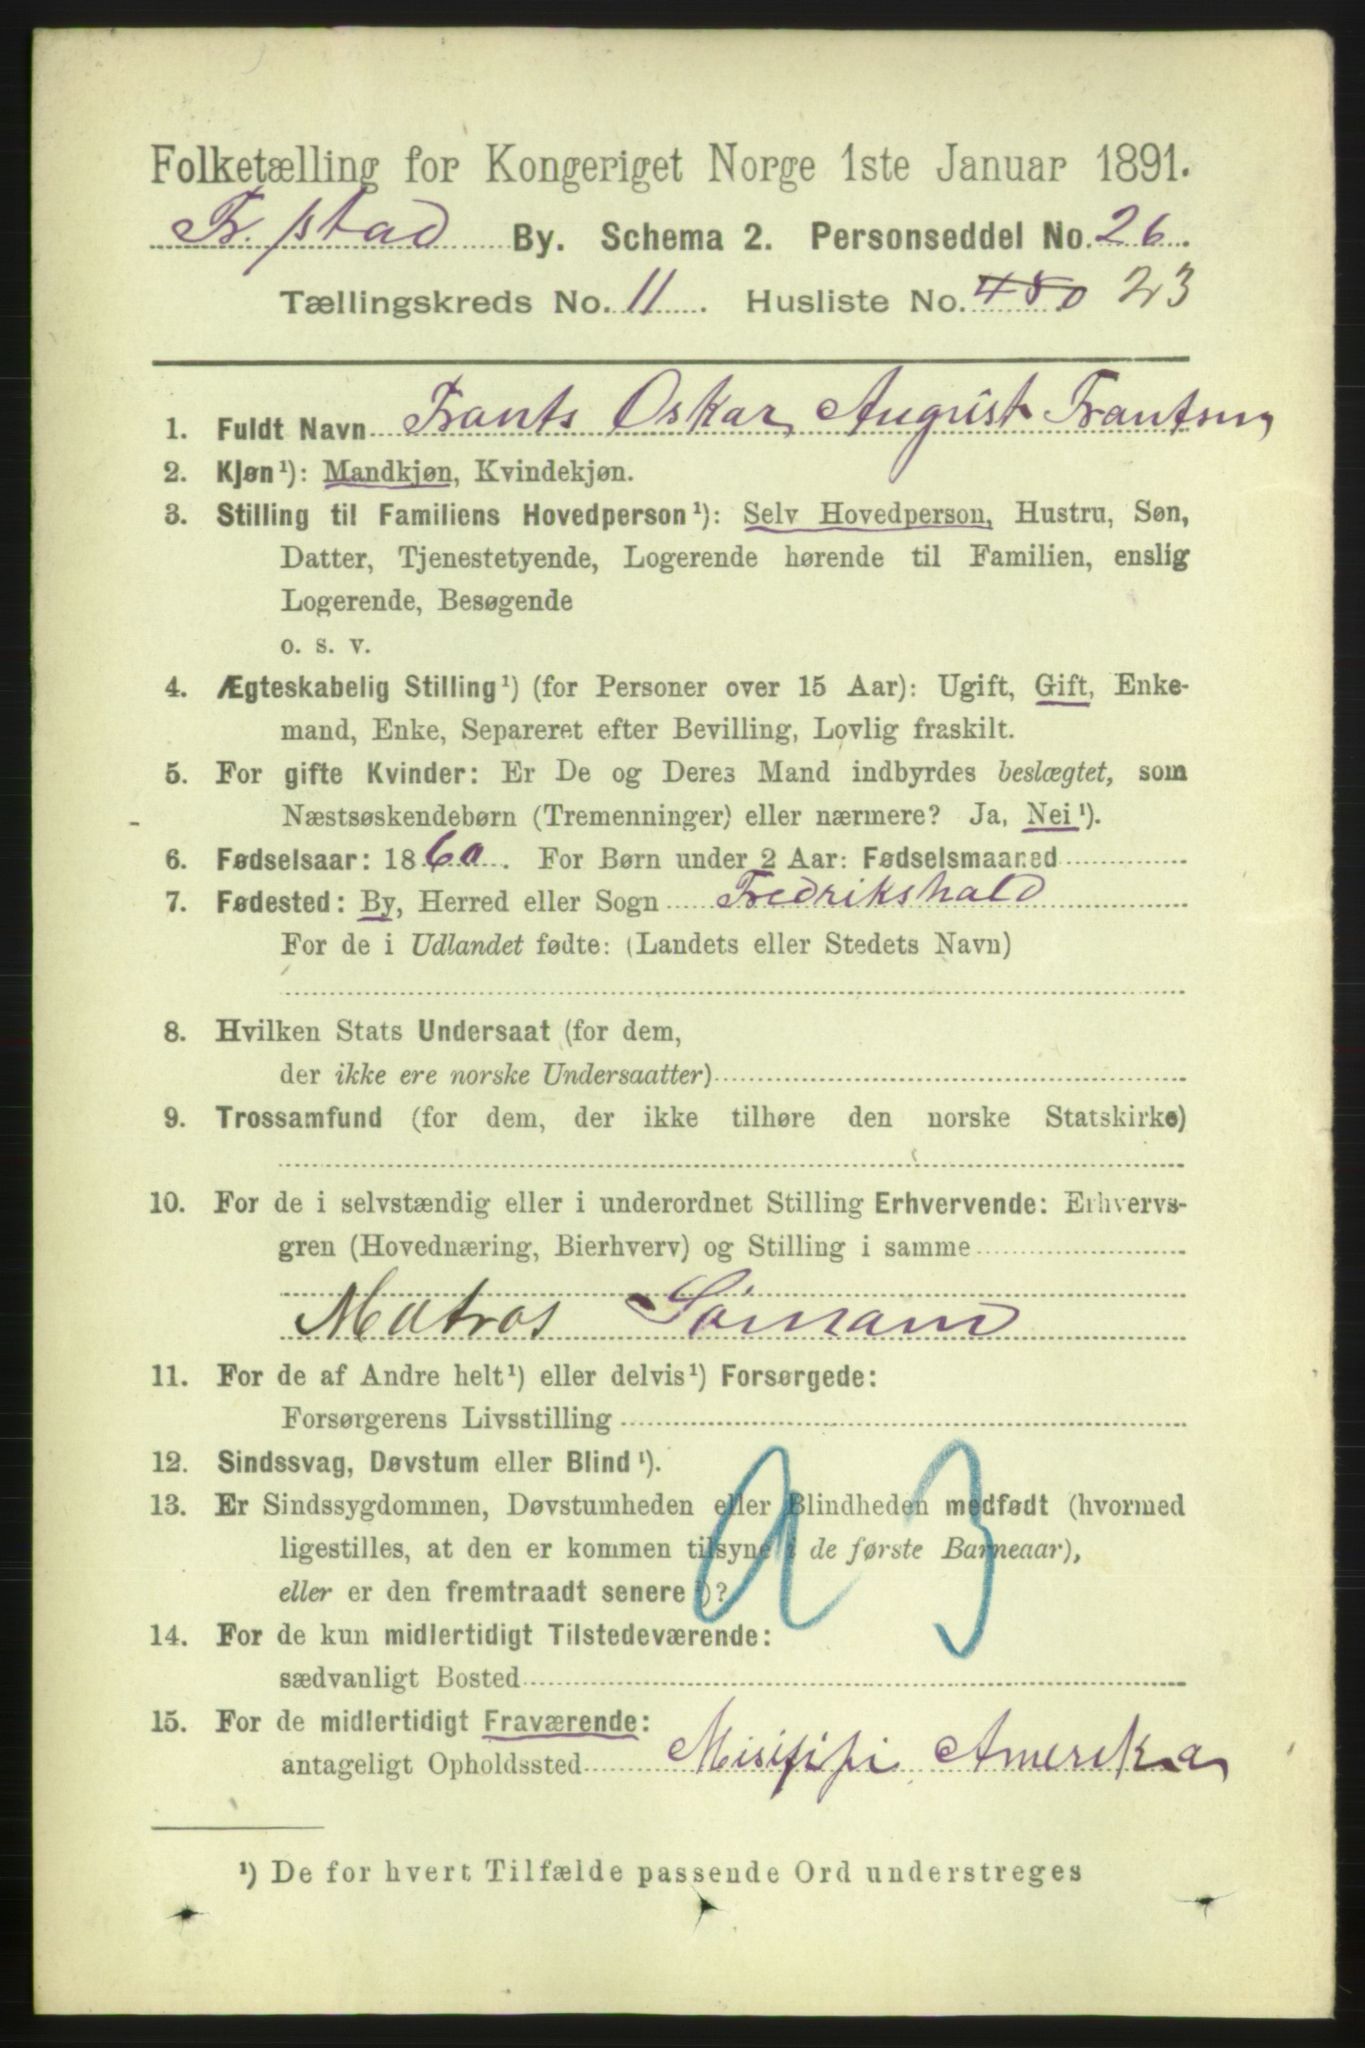 Folketælling for Kongeriget Norge 1ste Januar 1891.
Fr.stad By. Schema 2. Personseddel No. 26.
Tællingskreds No. 11. Husliste No. 450 23
1. Fuldt Navn Frants Oskar August Frantsen
2. Kjøn¹): Mandkjøn, Kvindekjøn.
3. Stilling til Familiens Hovedperson¹): Selv Hovedperson, Hustru, Søn,
Datter, Tjenestetyende, Logerende hørende til Familien, enslig
Logerende, Besøgende
o. s. v.
4. Ægteskabelig Stilling¹) (for Personer over 15 Aar): Ugift, Gift, Enke-
mand, Enke, Separeret efter Bevilling, Lovlig fraskilt.
5. For gifte Kvinder: Er De og Deres Mand indbyrdes beslægtet, som
Næstsøskendebørn (Tremenninger) eller nærmere? Ja, Nei¹).
6. Fødselsaar: 1860. For Børn under 2 Aar: Fødselsmaaned
7. Fødested: By, Herred eller Sogn Fredrikshald
For de i Udlandet fødte: (Landets eller Stedets Navn)
8. Hvilken Stats Undersaat (for dem,
der ikke ere norske Undersaatter)
9. Trossamfund (for dem, der ikke tilhøre den norske Statskirke)
10. For de i selvstændig eller i underordnet Stilling Erhvervende: Erhvervs-
gren (Hovednæring, Bierhverv) og Stilling i samme
Matros Sømand
11. For de af Andre helt¹) eller delvis¹) Forsørgede:
Forsørgerens Livsstilling
12. Sindssvag, Døvstum eller Blind¹).
13. Er Sindssygdommen, Døvstumheden eller Blindheden medfødt (hvormed
ligestilles, at den er kommen tilsyne i de første Barneaar),
eller er den fremtraadt senere¹)?
14. For de kun midlertidigt Tilstedeværende:
sædvanligt Bosted
15. For de midlertidigt Fraværende:
antageligt Opholdssted Misisipi Amerika
¹) De for hvert Tilfælde passende Ord understreges